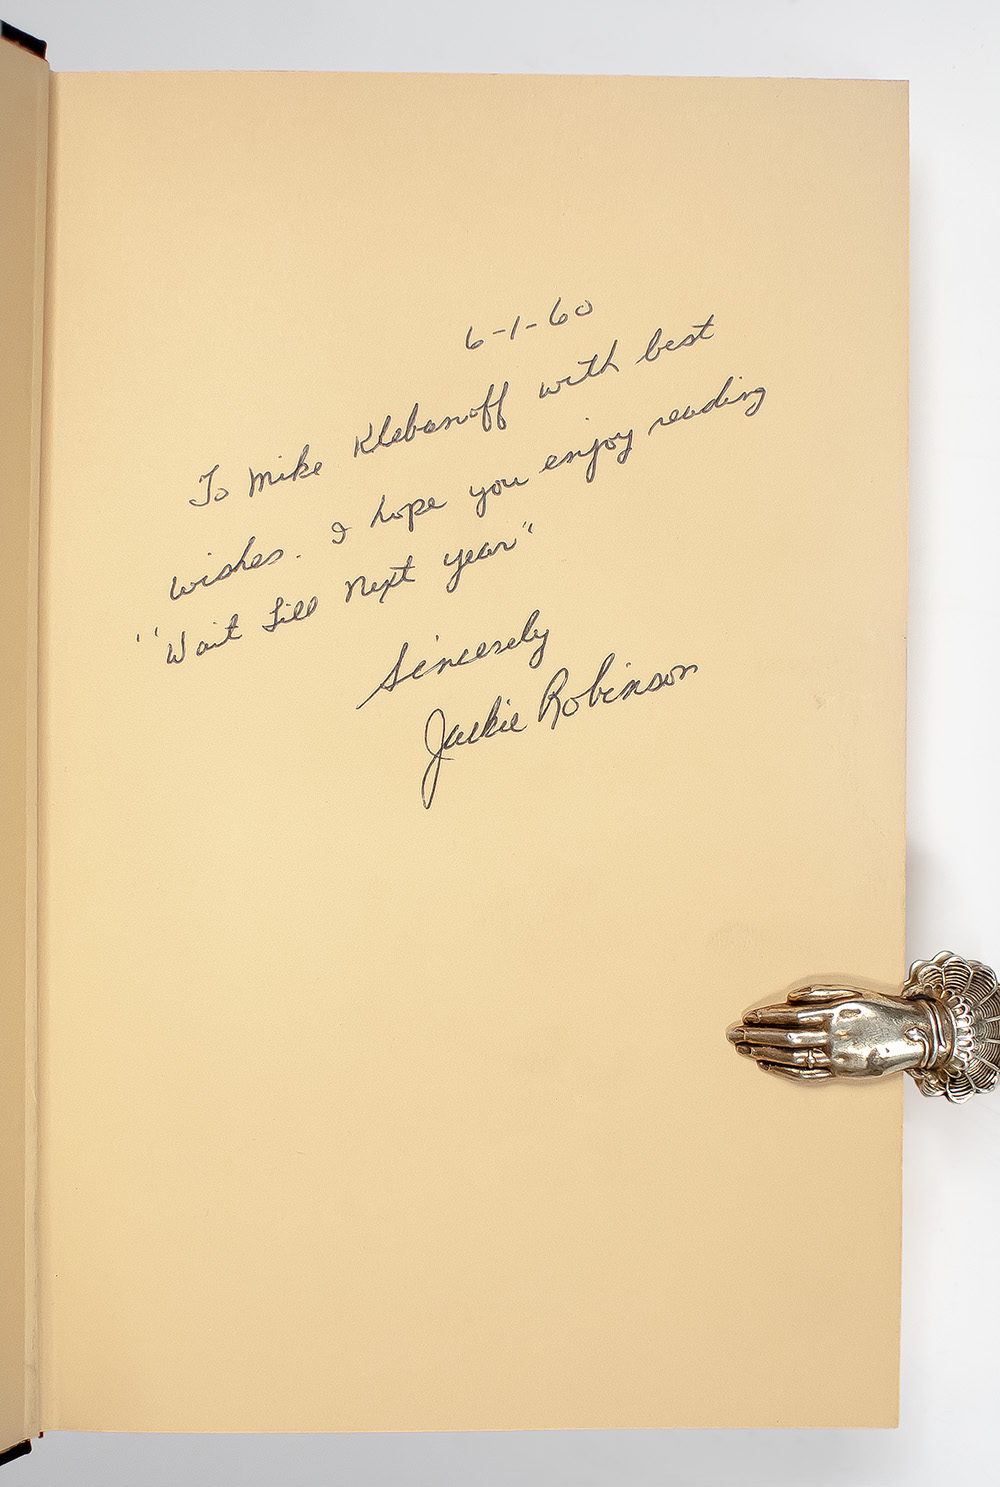 6-1-60
To Mike Klebanoff with best
wishes. I hope you enjoy reading
"Wait Till Next Year"
Sincerely
Jackie Robinson